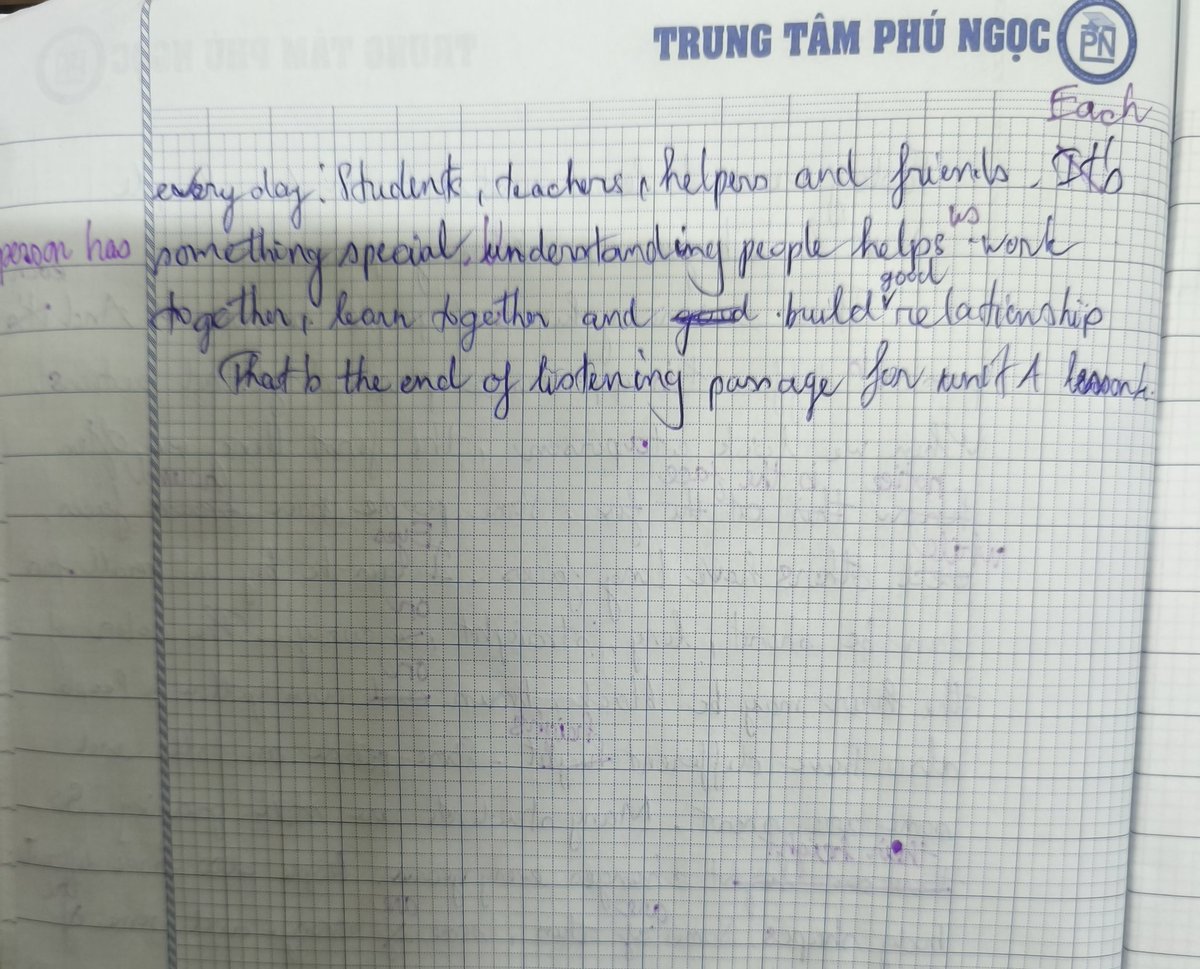 TRUNG TÂM PHÚ NGỌC PN
Each
every day: Students, teachers, helpers and friends. It's
person has something special. Understanding people helps us work
together, learn together and good build good relationship
That's the end of listening passage for unit 1 lesson 1.